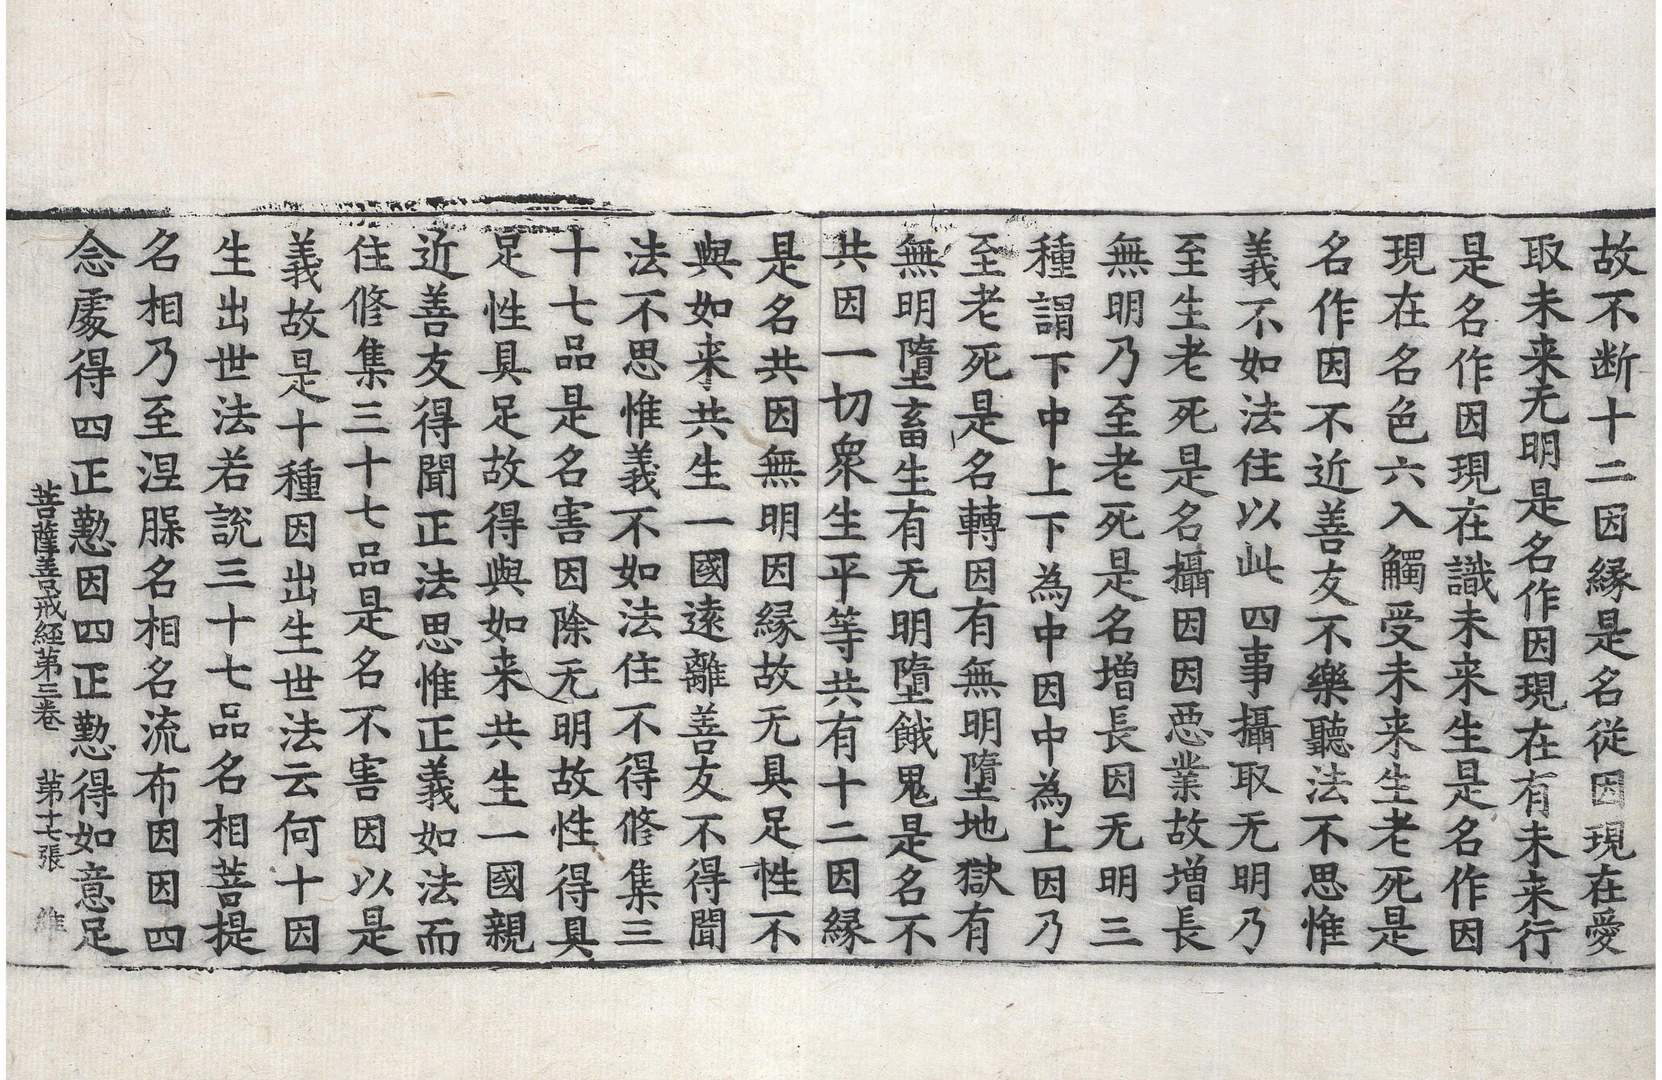 故不断十二因縁是名從因現在愛
取未来无明是名作因現在有未来行
是名作因現在識未来生是名作因
現在名色六入觸受未来生老死是
名作因不近善友不樂聽法不思惟
義不如法住以此四事攝取无明乃
至生老死是名攝因因惡業故增長
無明乃至老死是名增長因无明三
種謂下中上下為中因中為上因乃
至老死是名轉因有無明墮地獄有
無明墮畜生有无明墮餓鬼是名不
共因一切衆生平等共有十二因縁
是名共因無明因縁故无具足性不
與如来共生一國遠離善友不得聞
法不思惟義不如法住不得修集三
十七品是名害因除无明故性得具
足性具足故得與如来共生一國親
近善友得聞正法思惟正義如法而
住修集三十七品是名不害因以是
義故是十種因出生世法云何十因
生出世法若說三十七品名相菩提
名相乃至涅脲名相名流布因因四
念處得四正懃因四正懃得如意足
菩薩善戒經第三卷 第十七張 維